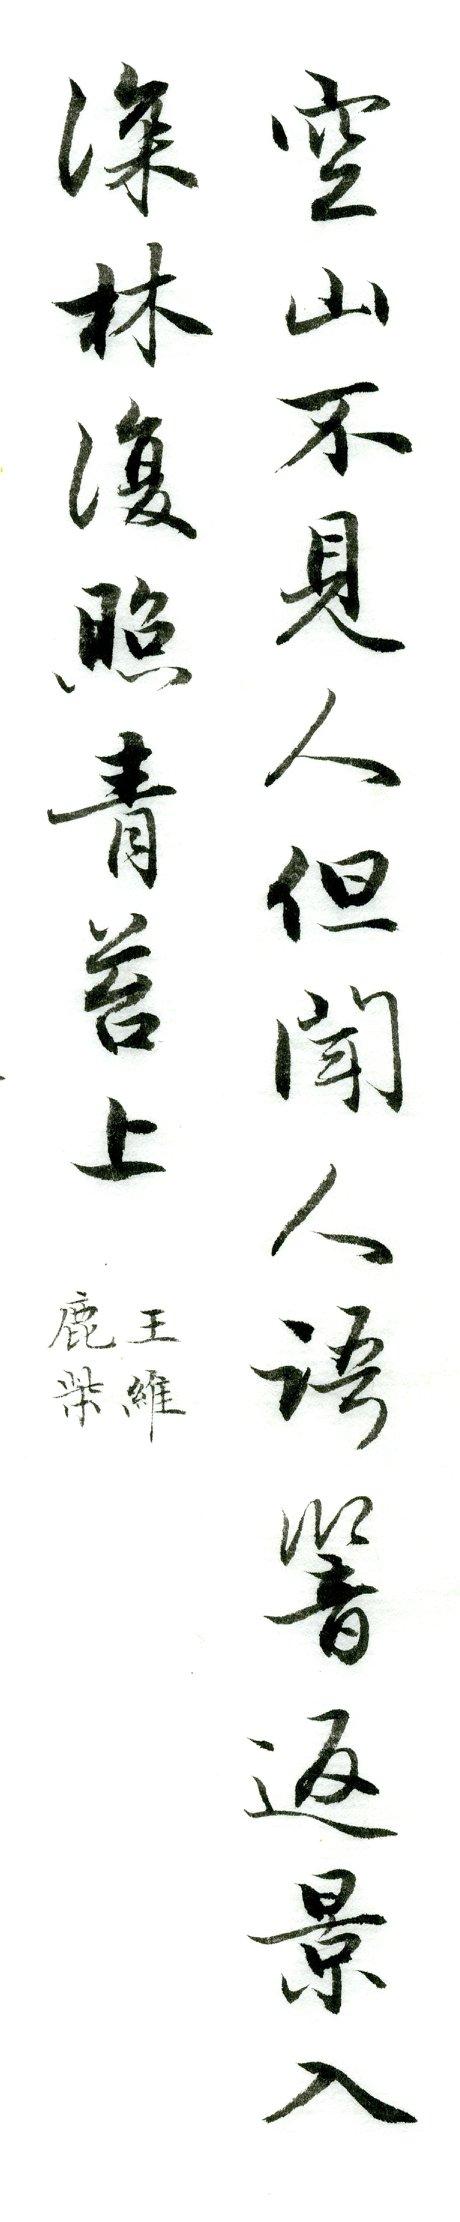 空山不見人但聞人語響返景入
深林復照青苔上
王維
鹿柴